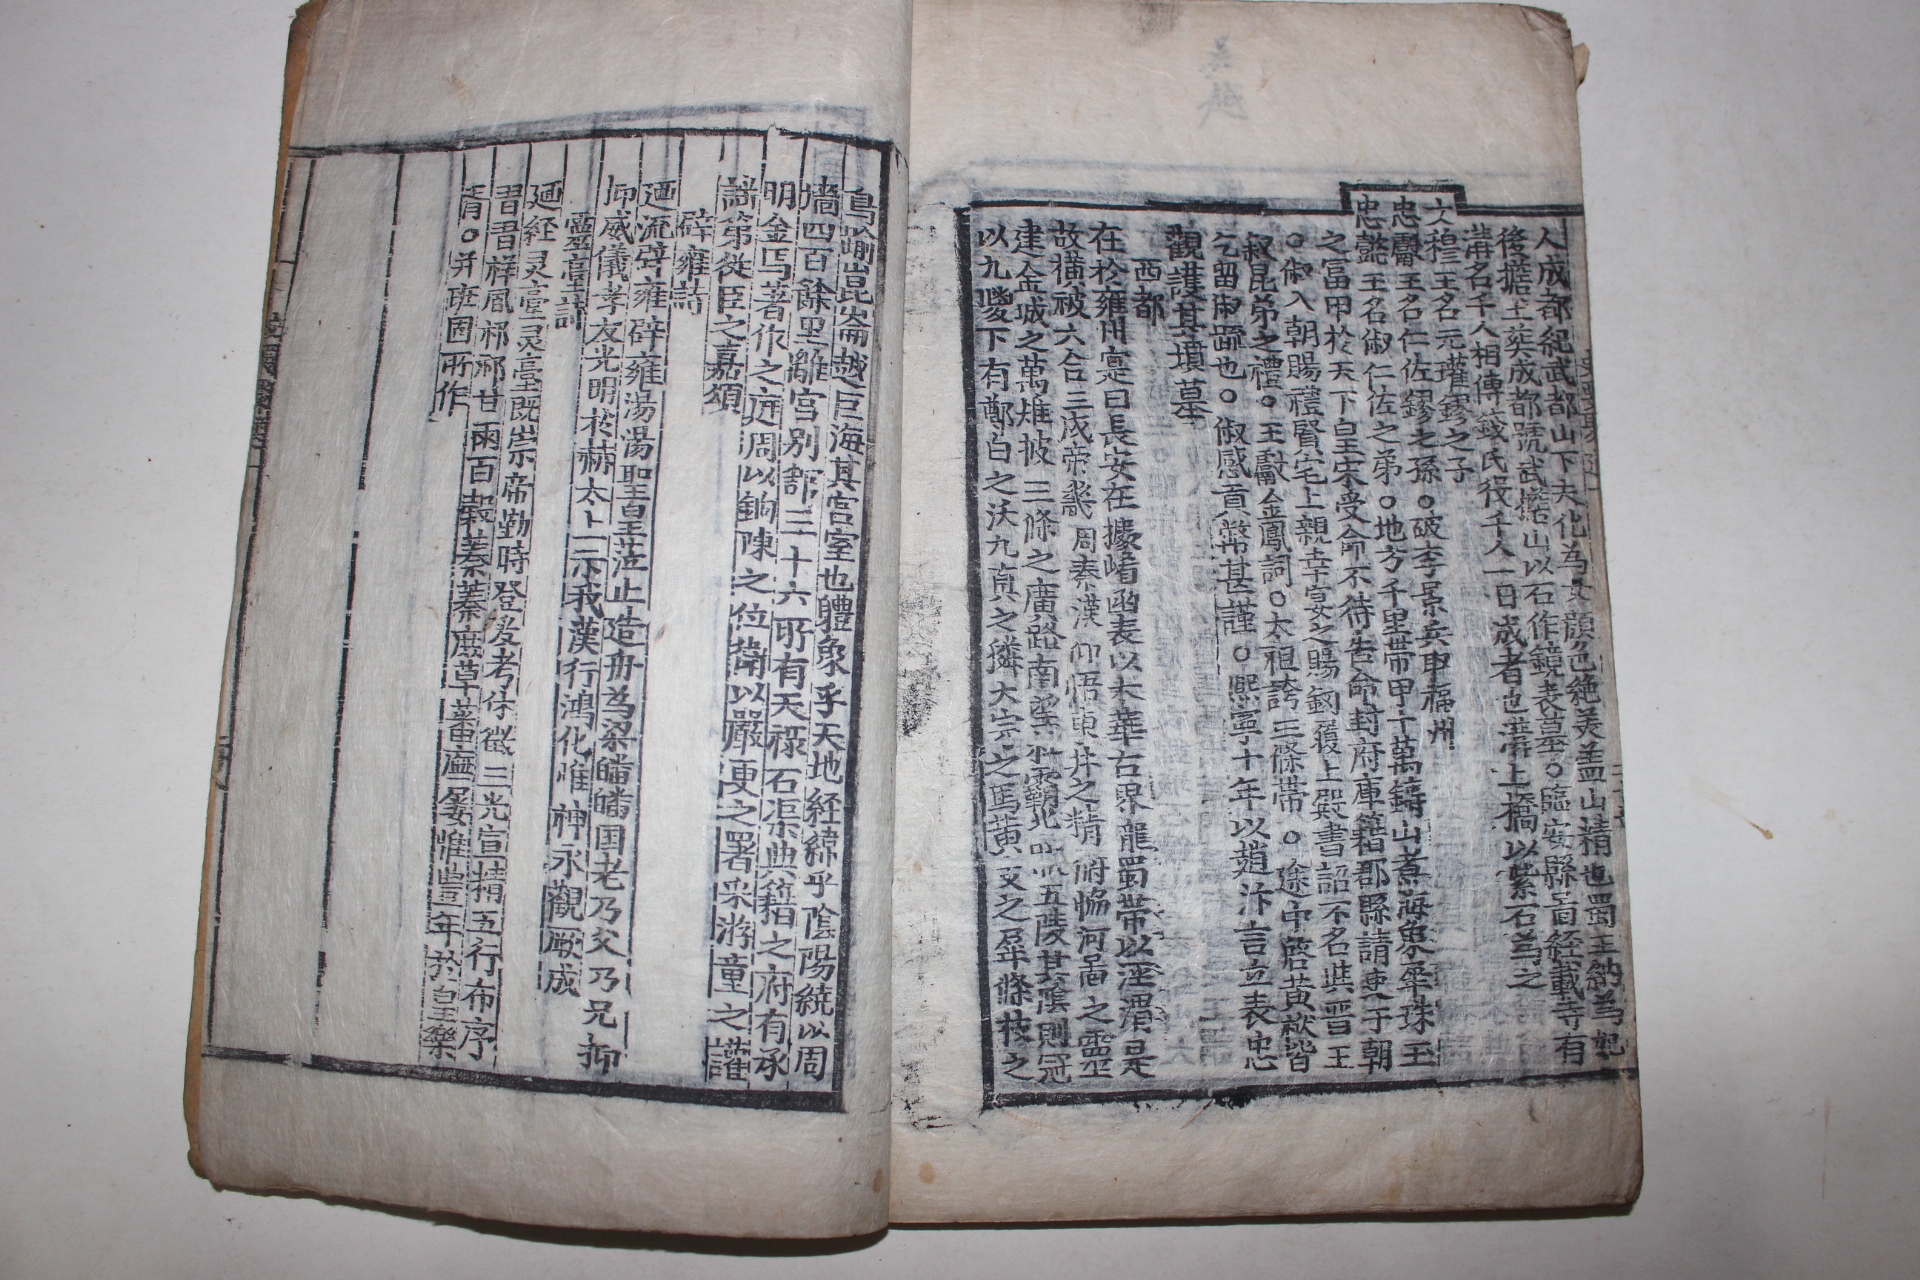 人成都紀武都山下夫化为女顔色絶美盖山精也蜀王納为妃
後擔土葬成都號武擔山以石作鏡表其墓○臨安縣舊経載寺有
溝名千人相傳錢氏役千人一日成者也溝上橋以紫石为之
文穆王名元瓘鏐之子
忠獻王名仁佐鏐之孫○破李景兵甲福州
忠懿王名俶仁佐之弟○地方千里帶甲十萬鑄山煮海象犀珠玉
之富甲於天下皇宋受命不待告命封府庫籍郡縣請吏于朝
○俶入朝賜禮賢宅上親幸宴之賜劔履上殿書詔不名與晋王
叙昆弟之禮○王獻金鳳詞○太祖誇三條帶○途中啓黄袱皆
乞留俶䟽也○俶感貢幣甚謹○熙寧十年以趙汴言立表忠
觀護其墳墓
西都
在於雍州寔曰長安左據崤函表以太華右界龍蜀帯以涇渭是
故横被六合三成帝畿周秦漢仰悟東井之精俯恊河啚之靈
建金城之萬雉披三條之廣路南望杜霸北眺五陵其陰則冠
以九嵕下有鄭白之沃九真之獜大宛之馬黄支之犀條枝之
鳥踰崑崙越巨海其宫室也軆象乎天地経緯乎陰陽繞以周
墻四百餘里離宫别舘三十六所有天禄石渠典籍之府有承
明金马著作之庭周以鉤陳之位衛以嚴更之署采游童之讙
謡第從臣之嘉頌
辟雍詩
廼流辟雍辟雍湯湯聖皇莅止造舟为梁皤皤国老乃父乃兄抑
抑威儀孝友光明於赫太上示我漢行鴻化惟神永觀厥成
靈臺詩
廼経灵臺灵臺既崇帝勤時登爰考休徵三光宣精五行布序
習習祥風祁祁甘雨百穀蓁蓁庶草蕃廡屢惟豊年於皇樂
胥○并班固所作